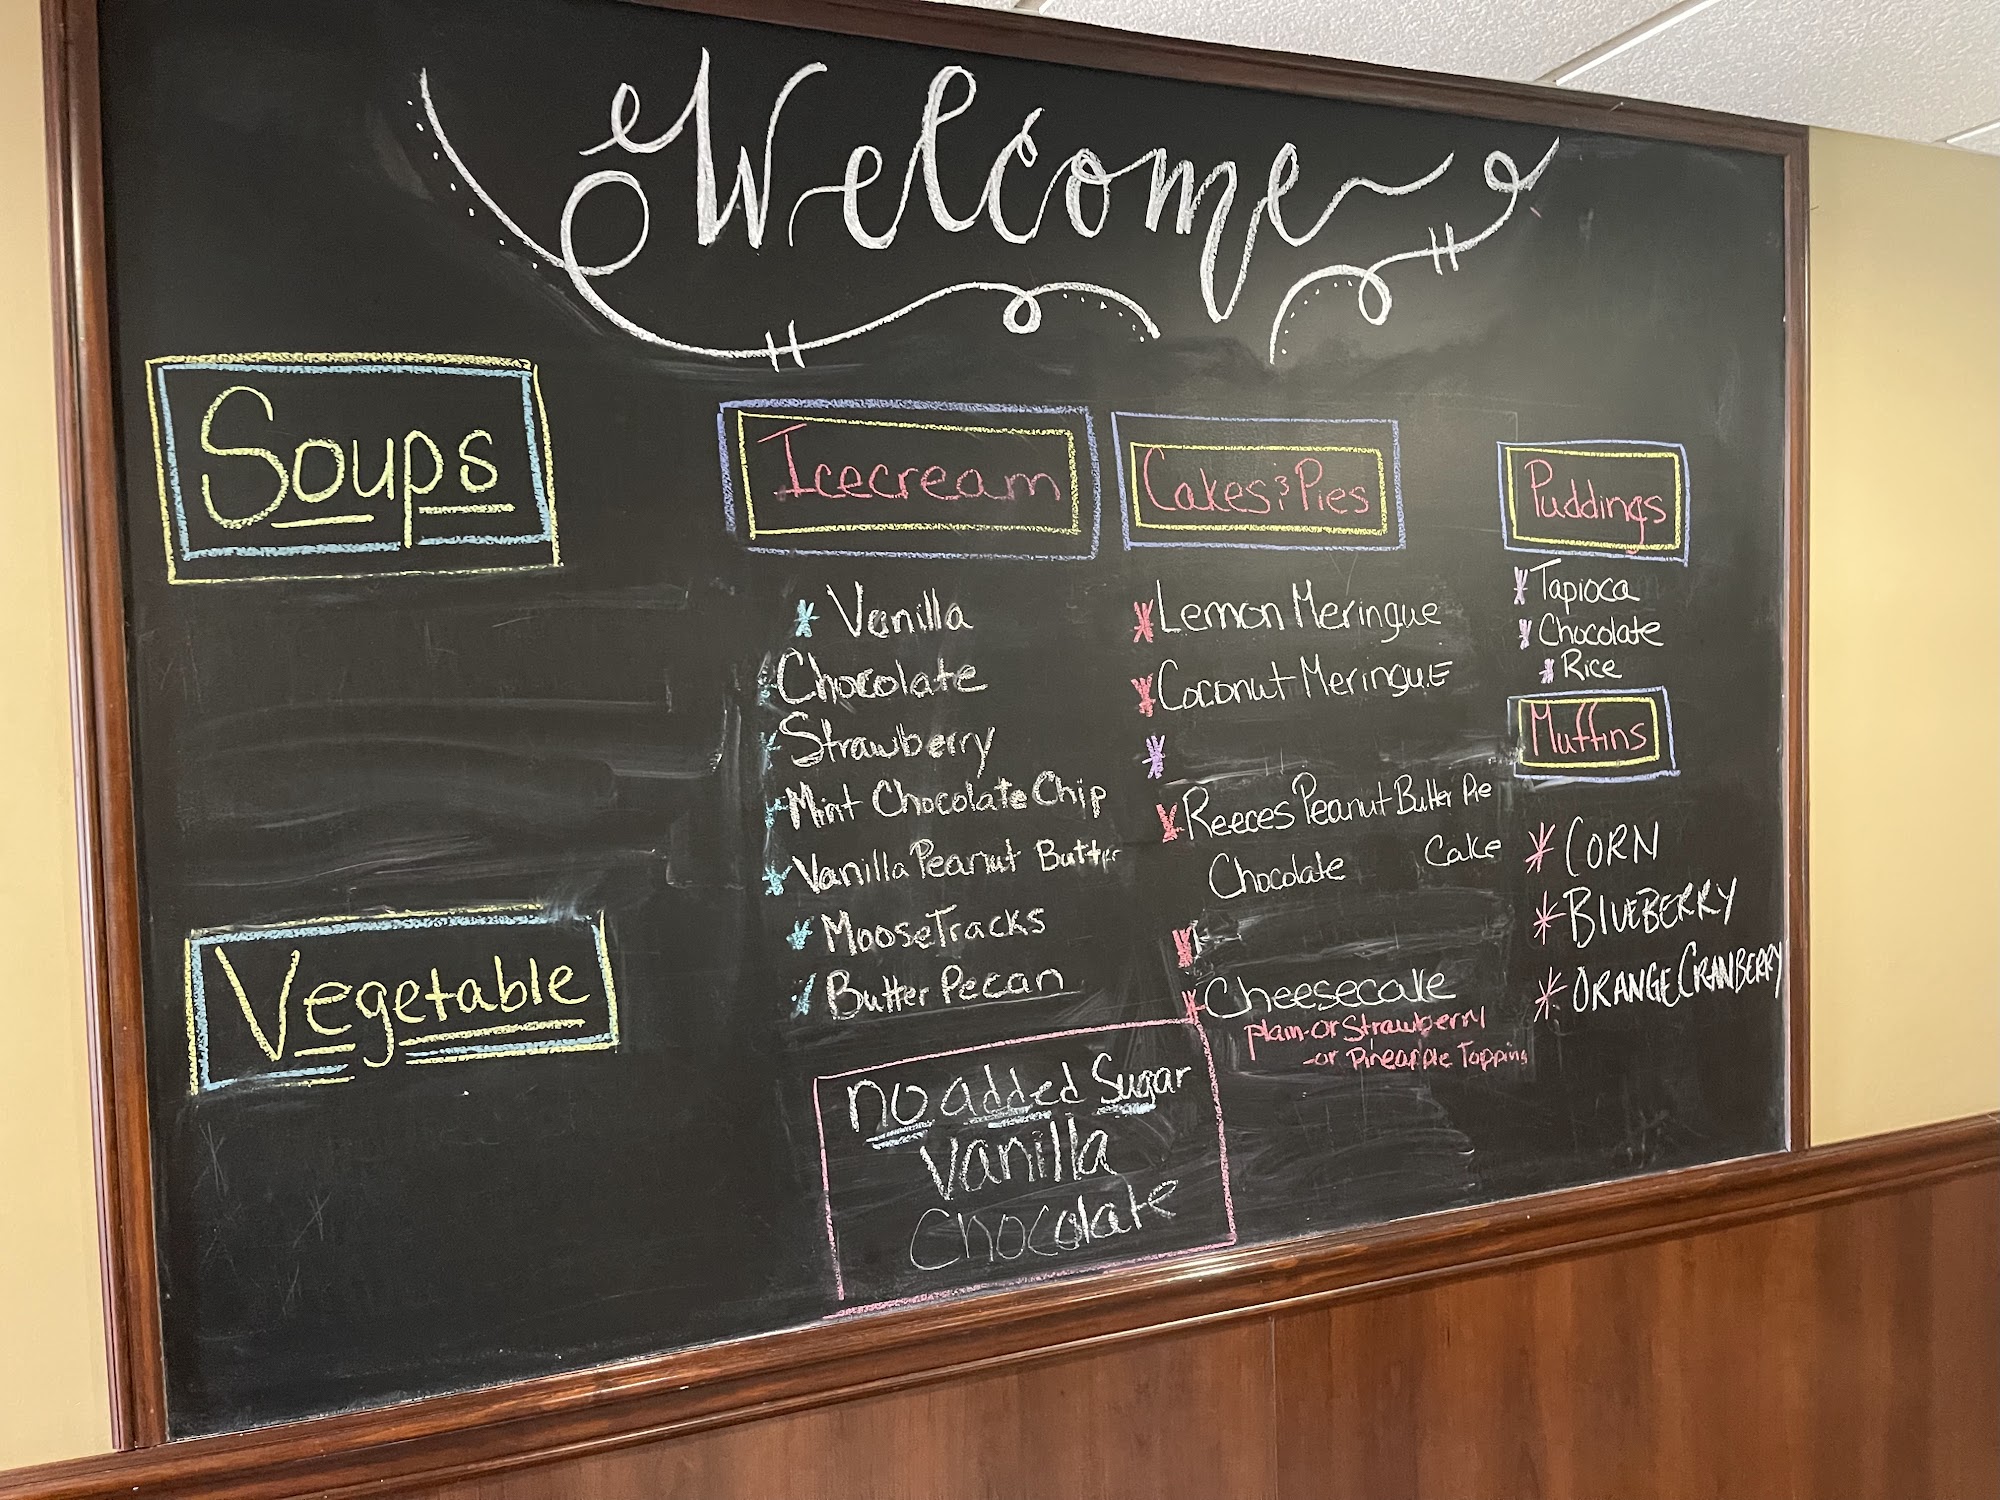 Welcome
Soups
Vegetable
Icecream
Vanilla
Chocolate
Strawberry
Mint Chocolate Chip
Vanilla Peanut Butter
MooseTracks
Butter Pecan
no added Sugar
Vanilla
Chocolate
Cakes & Pies
Lemon Meringue
Coconut Meringue
Reeces Peanut Butter Pie
Chocolate Cake
Cheesecake
plain-or Strawberry
-or Pineapple Topping
Puddings
Tapioca
Chocolate
Rice
Muffins
CORN
BLUEBERRY
ORANGE CRANBERRY